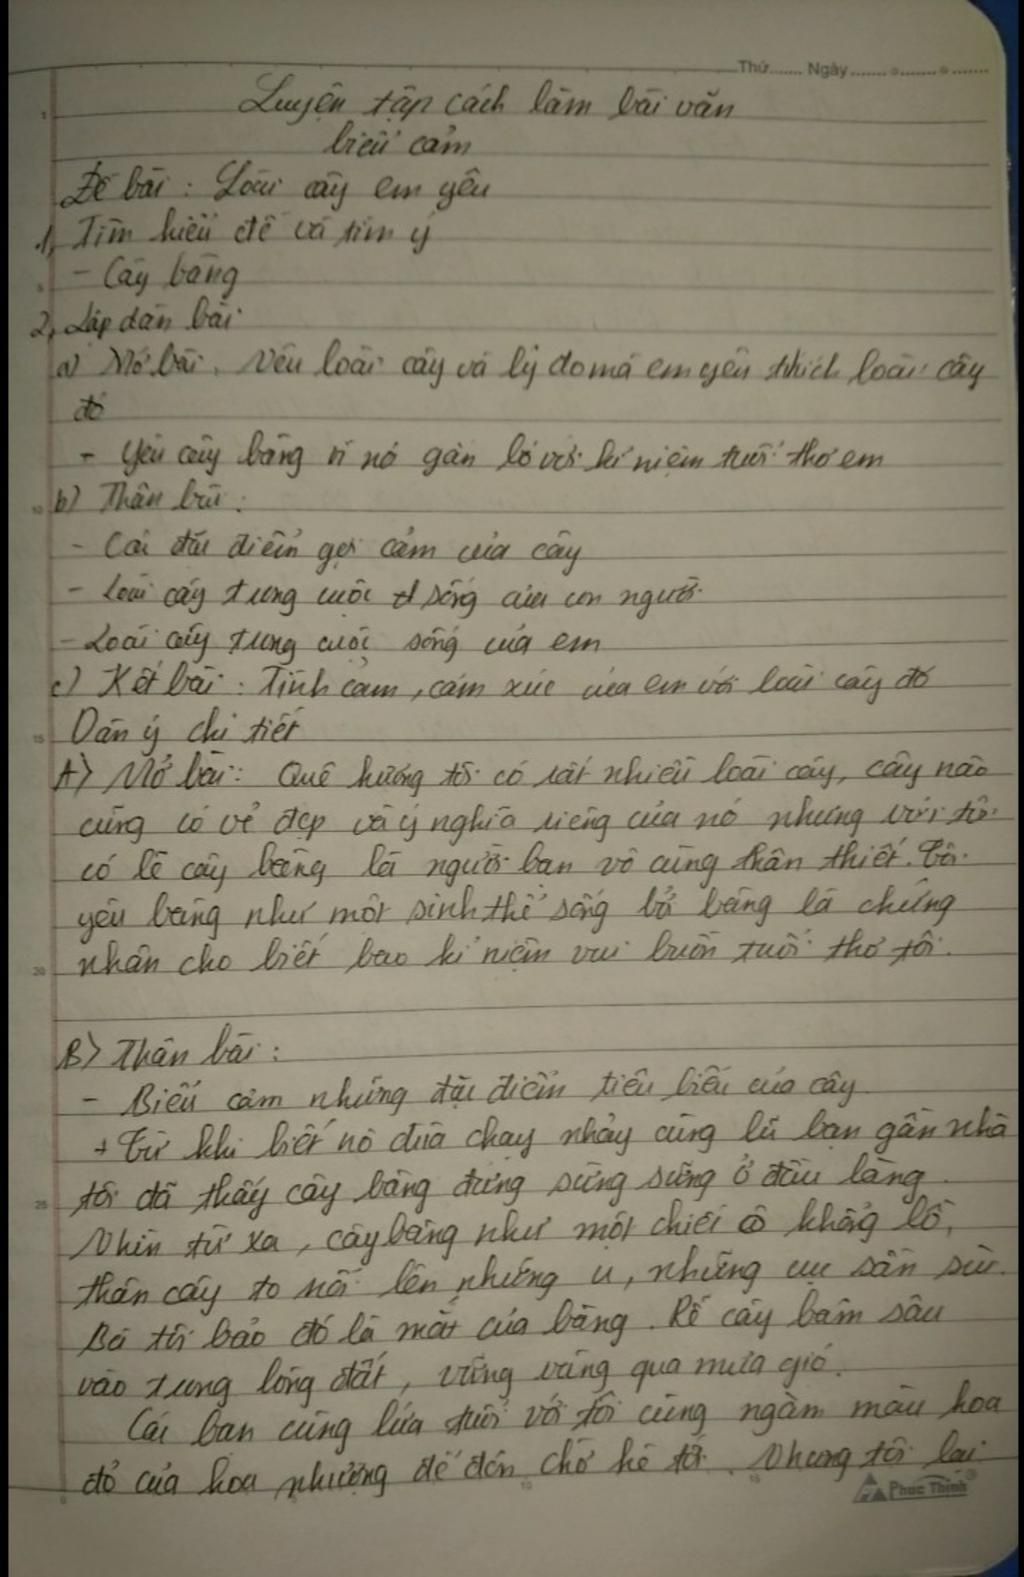 Thứ....... Ngày........................
Luyện tập cách làm bài văn
biểu cảm
Đề bài : Loài cây em yêu
1, Tìm hiểu đề và tìm ý
- Cây bàng
2, Lập dàn bài
a) Mở bài. Nêu loài cây và lý do mà em yêu thích loài cây
đó
- Yêu cây bàng vì nó gắn bó với kỉ niệm tuổi thơ em
b) Thân bài :
- Các đặc điểm gợi cảm của cây
- Loài cây trong cuộc sống của con người
- Loài cây trong cuộc sống của em
c) Kết bài : Tình cảm, cảm xúc của em với loài cây đó
Dàn ý chi tiết
A) Mở bài : Quê hương tôi có rất nhiều loài cây, cây nào
cũng có vẻ đẹp và ý nghĩa riêng của nó nhưng với tôi
có lẽ cây bàng là người bạn vô cùng thân thiết. Tôi
yêu bàng như một sinh thể sống bởi bàng là chứng
nhân cho biết bao kỉ niệm vui buồn tuổi thơ tôi.
B) Thân bài :
- Biểu cảm những đặc điểm tiêu biểu của cây
+ Từ khi biết nô đùa chạy nhảy cùng lũ bạn gần nhà
tôi đã thấy cây bàng đứng sừng sững ở đầu làng.
Nhìn từ xa, cây bàng như một chiếc ô khổng lồ,
thân cây to nổi lên những u, những cục sần sùi.
Bà tôi bảo đó là mắt của bàng. Rễ cây bám sâu
vào trong lòng đất, vững vàng qua mưa gió.
Các bạn cùng lứa tuổi với tôi cùng ngắm màu hoa
đỏ của hoa phượng để đón chờ hè tới. Nhưng tôi lại
Phuc Thinh